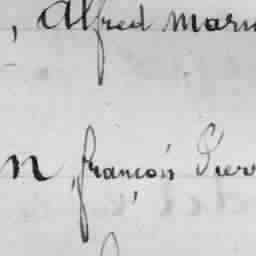 , Alfred Mar
n, françois Pier